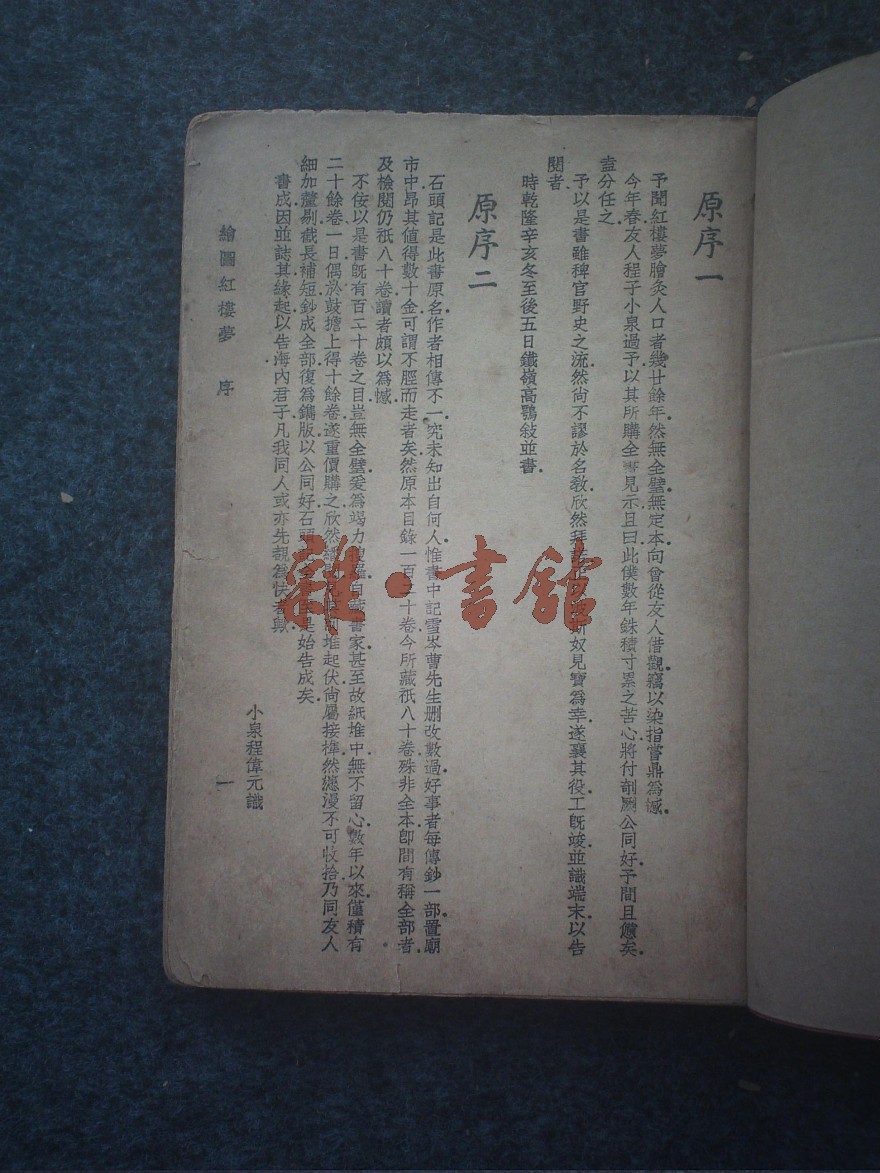 原序一
予聞紅樓夢膾炙人口者幾廿餘年然無全璧無定本向曾從友人借觀竊以染指嘗鼎為憾
今年春友人程子小泉過予以其所購全書見示且曰此僕數年銖積寸累之苦心將付剞劂公同好子閒且憊矣
盍分任之
予以是書雖稗官野史之流然尚不謬於名教欣然拜 奴見寶為幸遂襄其役工既竣並識端末以告
閱者
時乾隆辛亥冬至後五日鐵嶺高鶚敍並書
原序二
石頭記是此書原名作者相傳不一究未知出自何人惟書中記雪岑曹先生刪改數過好事者每傳鈔一部置廟
市中昂其值得數十金可謂不脛而走者矣然原本目錄一百二十卷今所藏祇八十卷殊非全本即間有稱全部者
及檢閱仍祇八十卷讀者頗以為憾
不佞以是書既有百二十卷之目豈無全璧爰為竭力 自藏書家甚至故紙堆中無不留心數年以來僅積有
二十餘卷一日偶於鼓擔上得十餘卷遂重價購之欣然 起伏尚屬接榫然漶漫不可收拾乃同友人
細加釐剔截長補短鈔成全部復為鐫版以公同好石頭 是始告成矣
書成因並誌其緣起以告海內君子凡我同人或亦先覩為快者歟
小泉程偉元識
繪圖紅樓夢 序
一
雜·書館